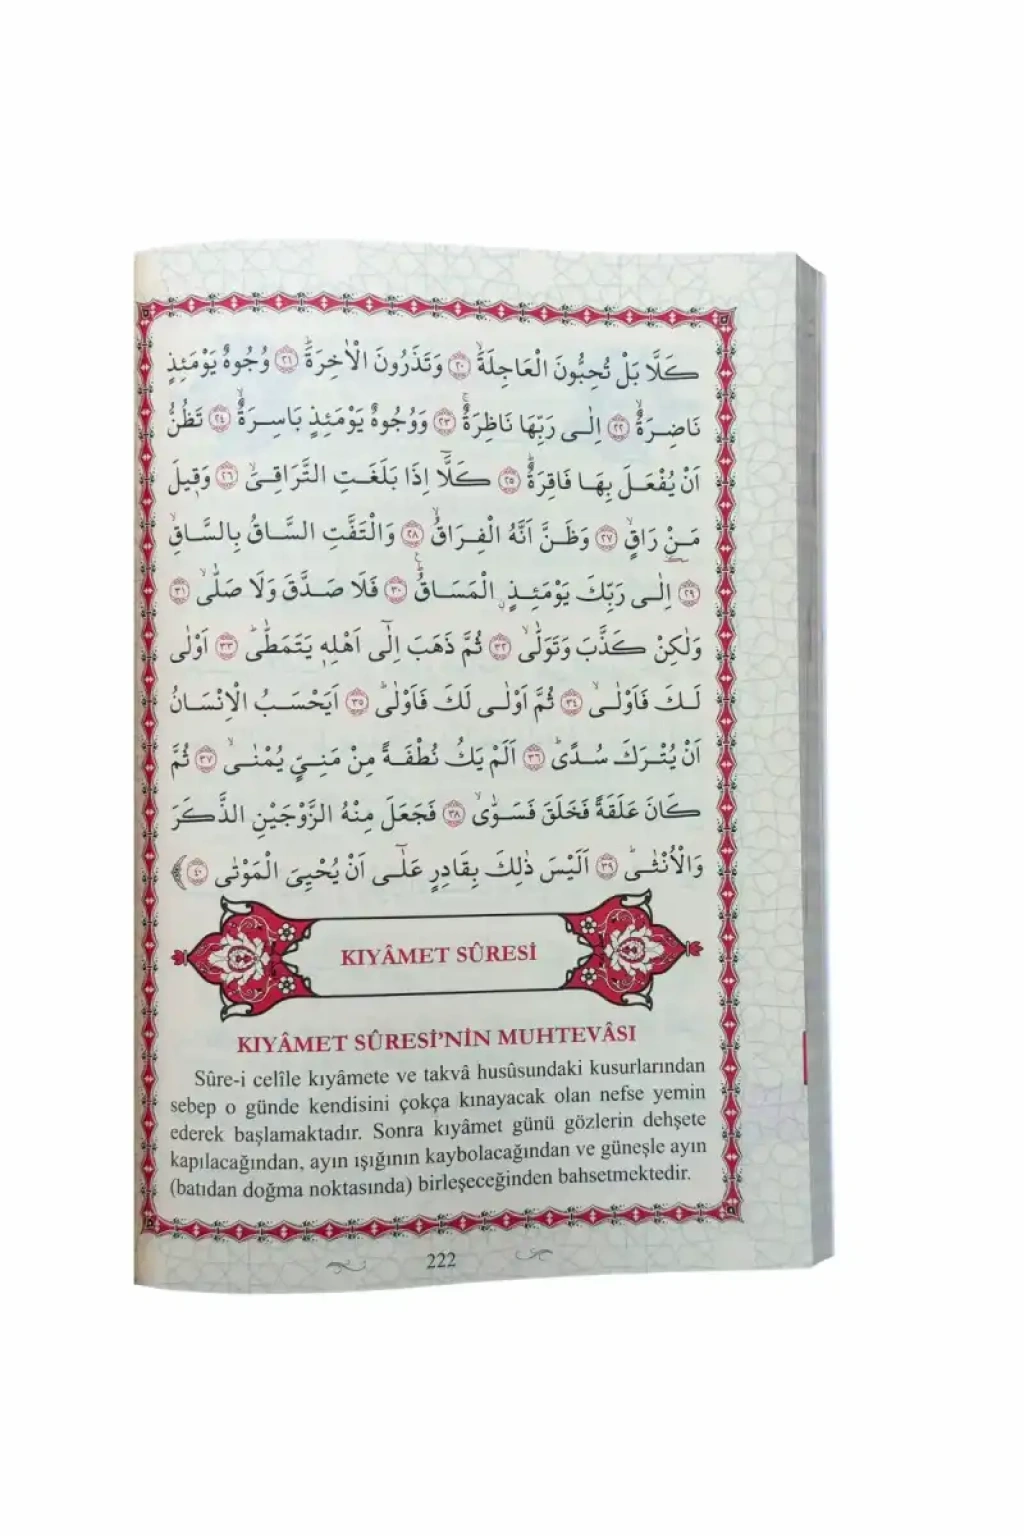 كَلَّا بَلْ تُحِبُّونَ الْعَاجِلَةَۙ ﴿٢٠﴾ وَتَذَرُونَ الْاٰخِرَةَۜ ﴿٢١﴾ وُجُوهٌ يَوْمَئِذٍ
نَاضِرَةٌۙ ﴿٢٢﴾ اِلٰى رَبِّهَا نَاظِرَةٌۚ ﴿٢٣﴾ وَوُجُوهٌ يَوْمَئِذٍ بَاسِرَةٌۙ ﴿٢٤﴾ تَظُنُّ
اَنْ يُفْعَلَ بِهَا فَاقِرَةٌۜ ﴿٢٥﴾ كَلَّٓا اِذَا بَلَغَتِ التَّرَاقِيَۙ ﴿٢٦﴾ وَق۪يلَ
مَنْ رَاقٍۙ ﴿٢٧﴾ وَظَنَّ اَنَّهُ الْفِرَاقُۙ ﴿٢٨﴾ وَالْتَفَّتِ السَّاقُ بِالسَّاقِۙ
﴿٢٩﴾ اِلٰى رَبِّكَ يَوْمَئِذٍۨ الْمَسَاقُۜ ﴿٣٠﴾ فَلَا صَدَّقَ وَلَا صَلّٰىۙ ﴿٣١﴾
وَلٰكِنْ كَذَّبَ وَتَوَلّٰىۙ ﴿٣٢﴾ ثُمَّ ذَهَبَ اِلٰٓى اَهْلِه۪ يَتَمَطّٰىۜ ﴿٣٣﴾ اَوْلٰى
لَكَ فَاَوْلٰىۙ ﴿٣٤﴾ ثُمَّ اَوْلٰى لَكَ فَاَوْلٰىۜ ﴿٣٥﴾ اَيَحْسَبُ الْاِنْسَانُ
اَنْ يُتْرَكَ سُدًىۜ ﴿٣٦﴾ اَلَمْ يَكُ نُطْفَةً مِنْ مَنِيٍّ يُمْنٰىۙ ﴿٣٧﴾ ثُمَّ
كَانَ عَلَقَةً فَخَلَقَ فَسَوّٰىۙ ﴿٣٨﴾ فَجَعَلَ مِنْهُ الزَّوْجَيْنِ الذَّكَرَ
وَالْاُنْثٰىۜ ﴿٣٩﴾ اَلَيْسَ ذٰلِكَ بِقَادِرٍ عَلٰٓى اَنْ يُحْيِيَ الْمَوْتٰى ﴿٤٠﴾
KIYÂMET SÛRESİ
KIYÂMET SÛRESİ’NİN MUHTEVÂSI
Sûre-i celîle kıyâmete ve takvâ husûsundaki kusurlarından
sebep o günde kendisini çokça kınayacak olan nefse yemin
ederek başlamaktadır. Sonra kıyâmet günü gözlerin dehşete
kapılacağından, ayın ışığının kaybolacağından ve güneşle ayın
(batıdan doğma noktasında) birleşeceğinden bahsetmektedir.
222